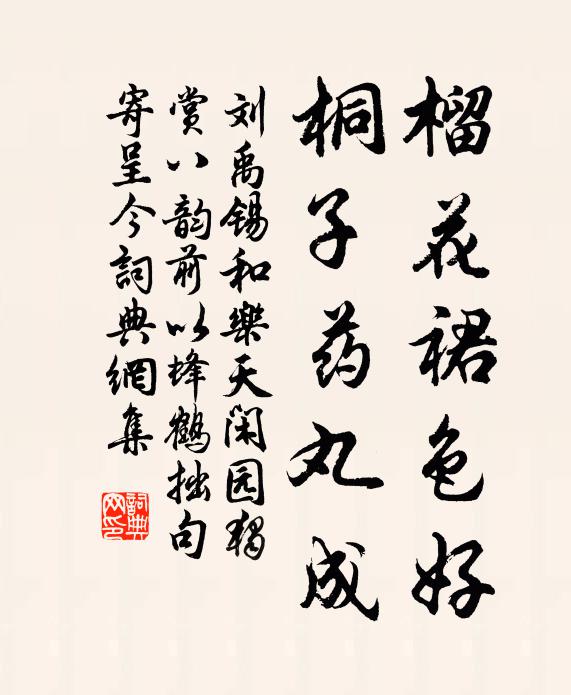 榴花裙色好
桐子药丸成
刘禹锡和樂天闲园獨
赏八韵前以蜂鹤拙句
寄呈今詞典網集
詞典网印